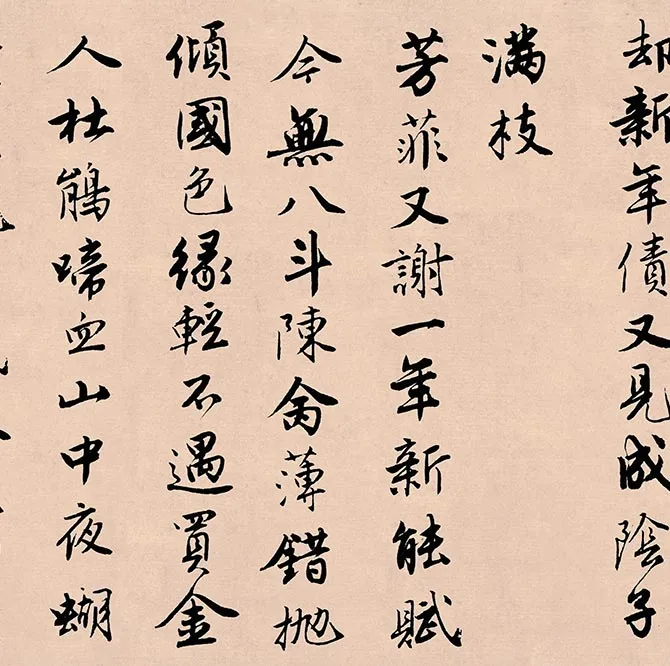 却新年債又見成陰子
滿枝
芳菲又謝一年新能賦
今無八斗陳禽薄錯抛
傾國色緣輕不遇買金
人杜鵑啼血山中夜蝴